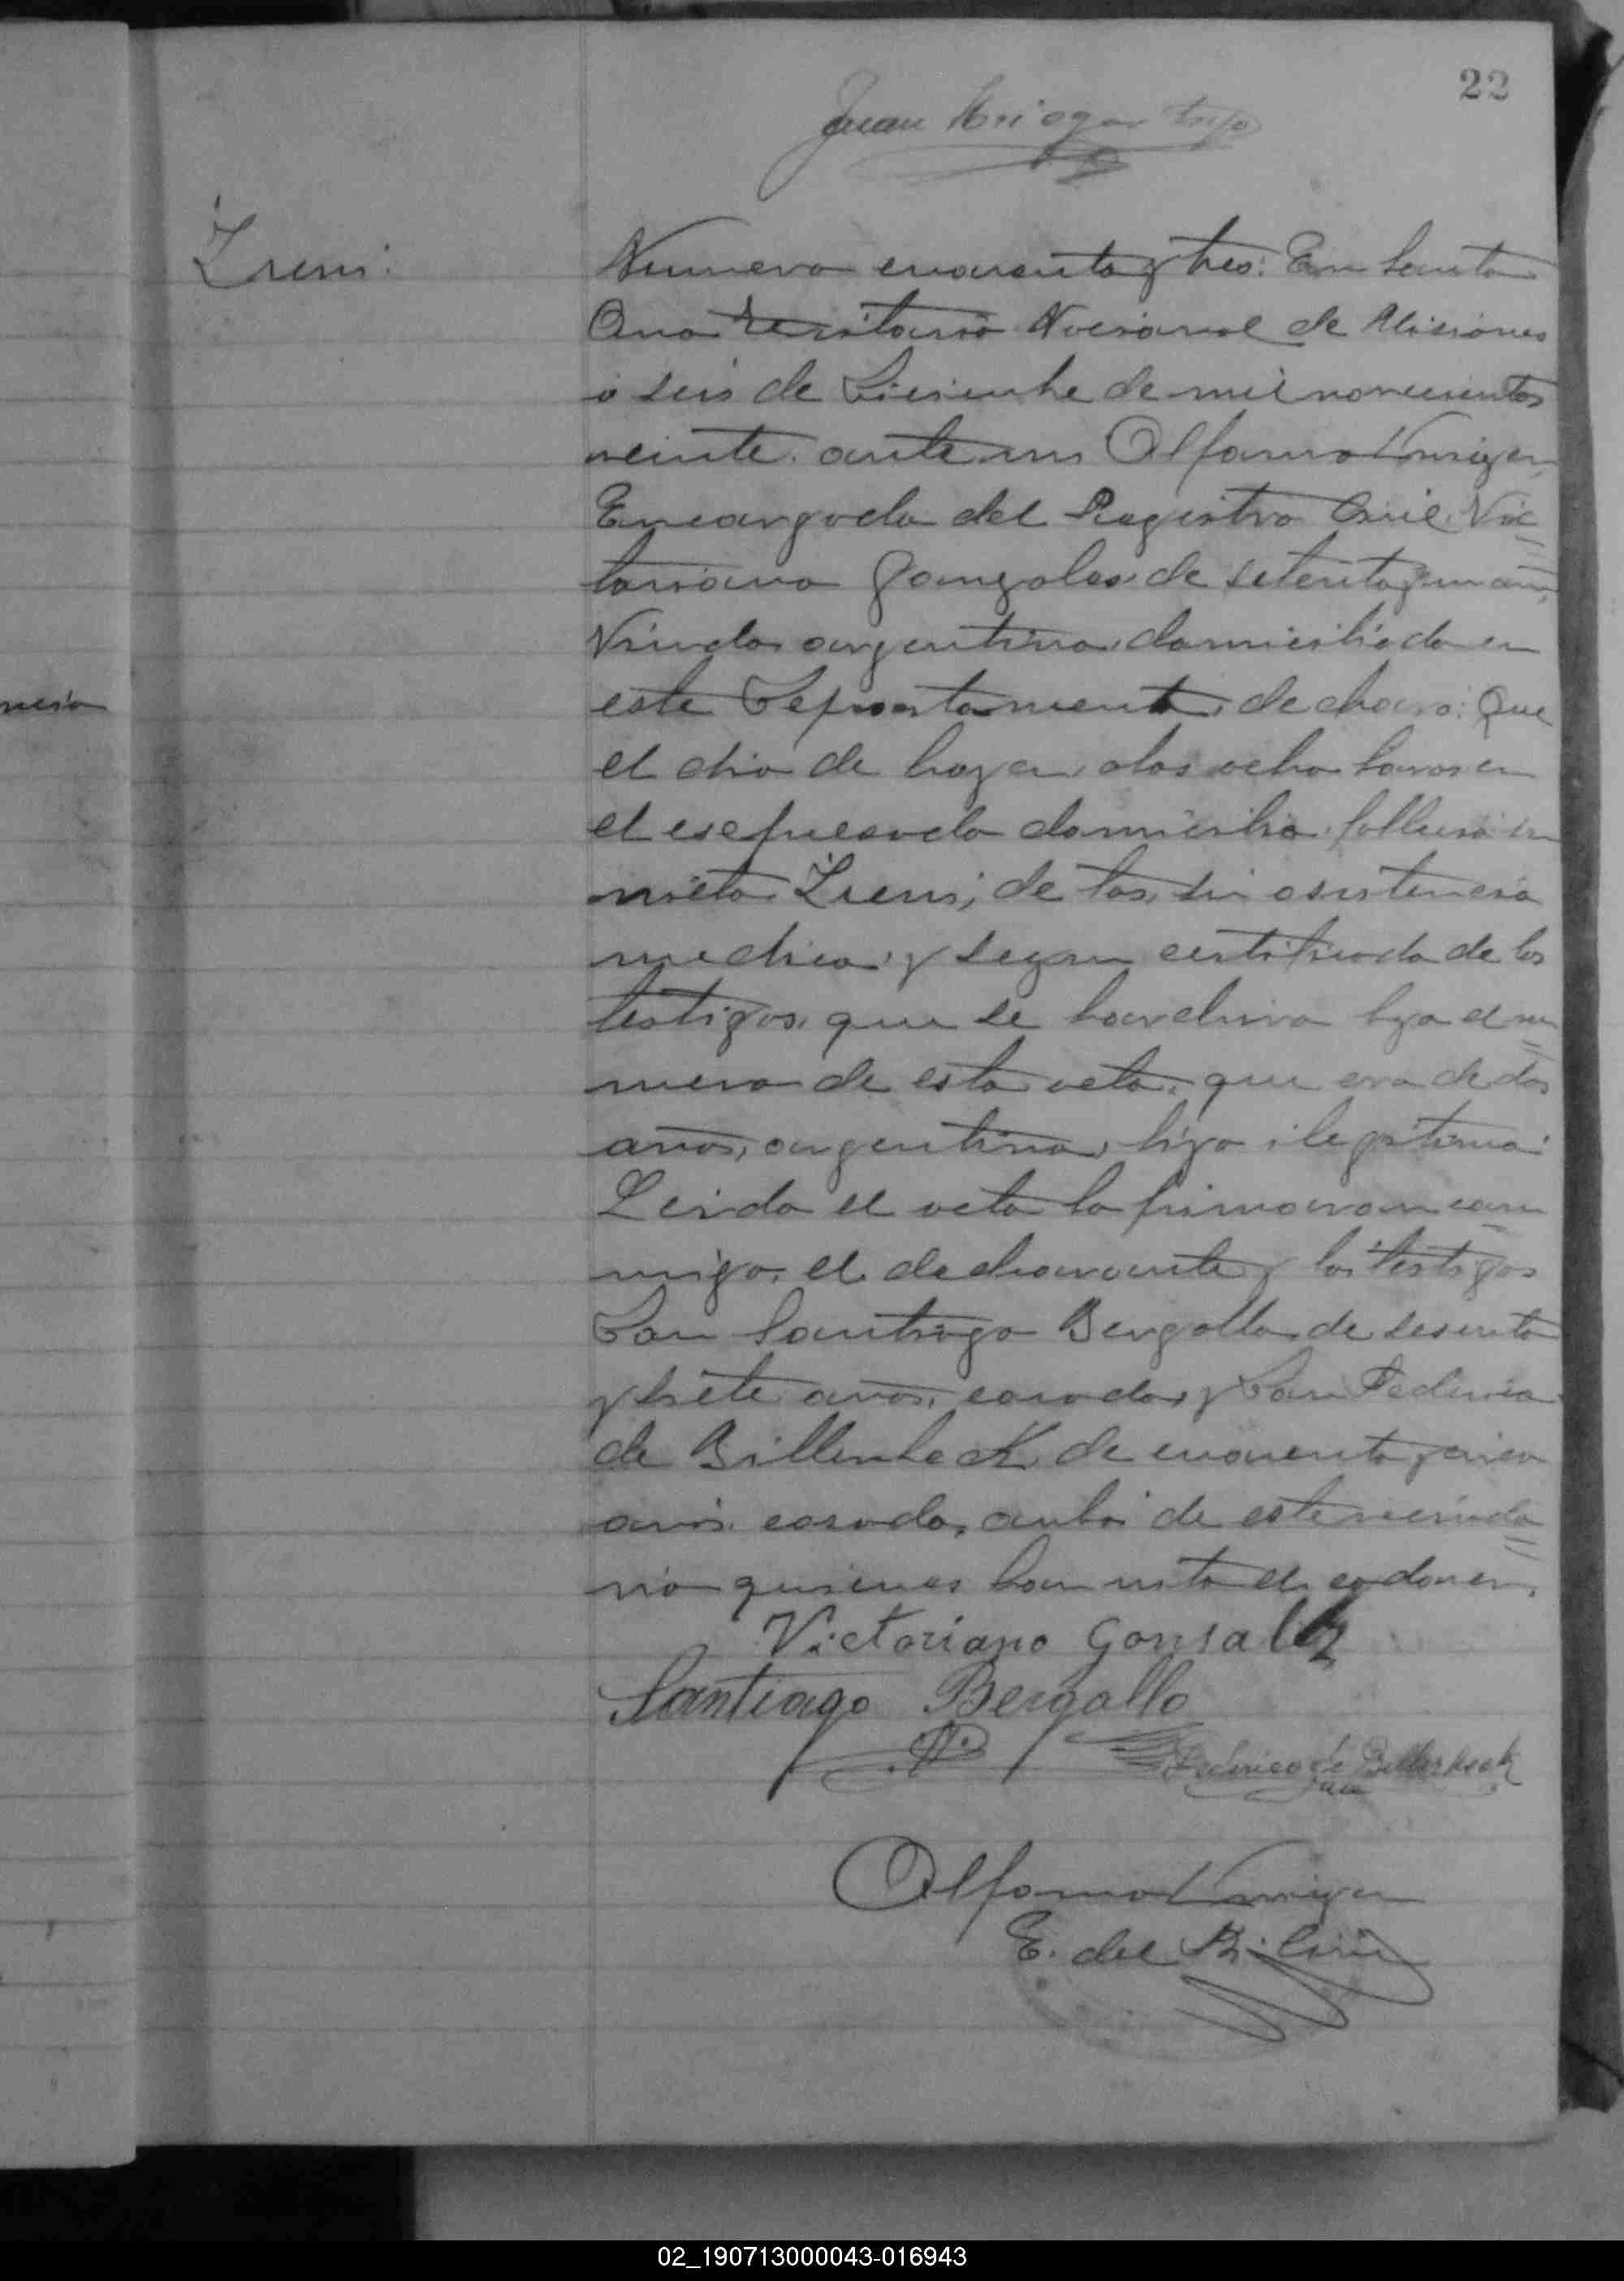 22
Juan
Ireni.
Numero cuarenta y tres: En Santa
Ana Territorio Nacional de Misiones
a seis de Diciembre de mil novecientos
veinte. ante mi Alfonso
Encargado del Registro Civil, Vic=
toriano Gonzales de setenta y un años,
Viudo argentino, domiciliado en
este Departamento, declaro: Que
el dia de hoy a las ocho horas en
el espresado domicilio fallecio su
nieta Ireni, de tos, sin asistencia
medica, y segun certificado de los
testigos, que se archiva bajo el nu=
mero de esta acta, que era de dos
años, argentina, hija ilegitima.
Leida el acta la firmaron con
migo, el declarante y los testigos
Don Santiago Bergallo de sesenta
y siete años, casado, y Don Federico
de Billerbeck de cuarenta y cinco
años. casado, ambos de este vecinda=
rio quienes han visto el cadaver.
Victoriano Gonsalez
Santiago Bergallo
Federico de Billerbeck
Alfonso
E. del R. Civil
02_190713000043-016943